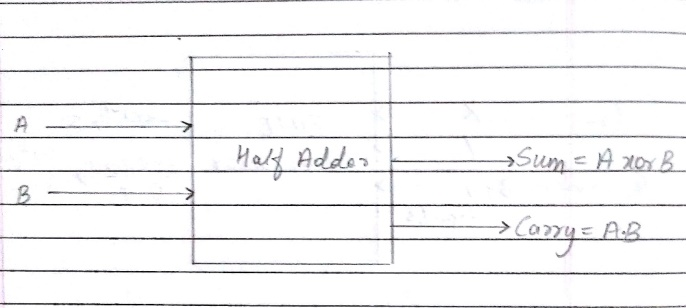 A
Half Adder
Sum = A xor B
B
Carry = A.B